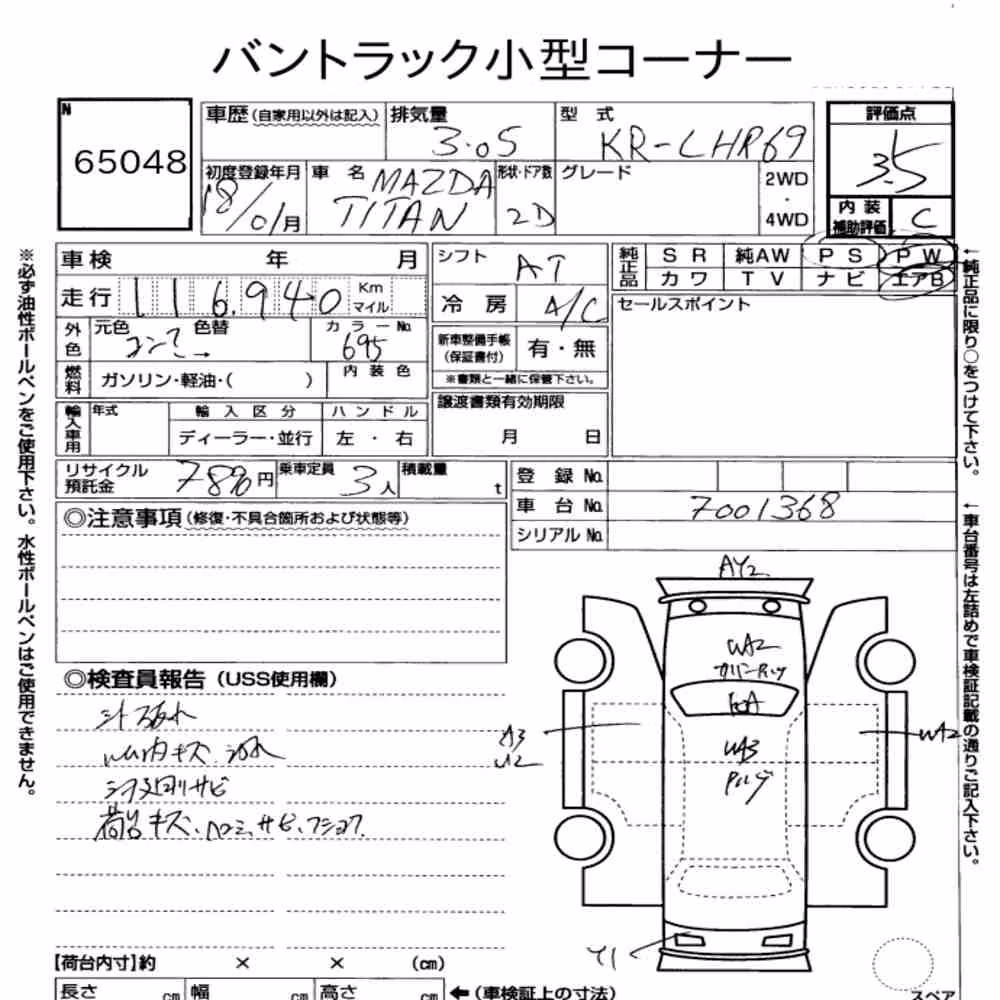 バントラック小型コーナー
N
65048
車歴 (自家用以外は記入)
排気量
3.05
型 式
KR-LHR69
評価点
3.5
初度登録年月
18/01月
車 名
MAZDA
TITAN
形状・ドア数
2D
グレード
2WD
・
4WD
内 装
補助評価
C
車検 年 月
シフト
AT
純正品
S R 純AW P S P W
カワ T V ナビ エアB
走行 116,940 Km
マイル
冷 房
A/C
セールスポイント
外色
元色 色替
カラーNo.
695
新車整備手帳
(保証書付)
有・無
※書類と一緒に保管下さい。
燃料
ガソリン・軽油・( )
内 装 色
譲渡書類有効期限
月 日
輸入車用
年式
輸 入 区 分
ハ ン ド ル
ディーラー・並行
左 ・ 右
リサイクル
預託金
円
乗車定員
3人
積載量
t
登 録 No.
車 台 No.
7001368
シリアル No.
◎注意事項 (修復・不具合箇所および状態等)
◎検査員報告 (USS使用欄)
AY2
WA2
A3
U2
WA3
WA2
Y1
【荷台内寸】約 × × (cm)
長さ cm 幅 cm 高さ cm
←(車検証上の寸法)
スペア
※必ず油性ボールペンをご使用下さい。水性ボールペンはご使用できません。
←純正品に限り○をつけて下さい。
←車台番号は左詰めで車検証記載の通りご記入下さい。